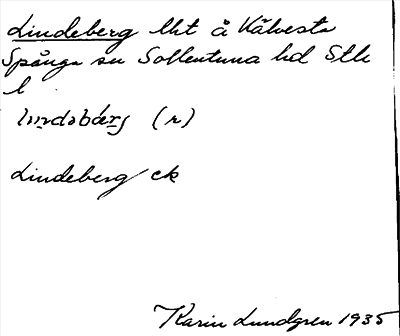 Lindeberg lht å Kälvesta
Spånga sn Sollentuna hd Sthlm
l
(r)
Lindeberg ek
Karin Lundgren 1935